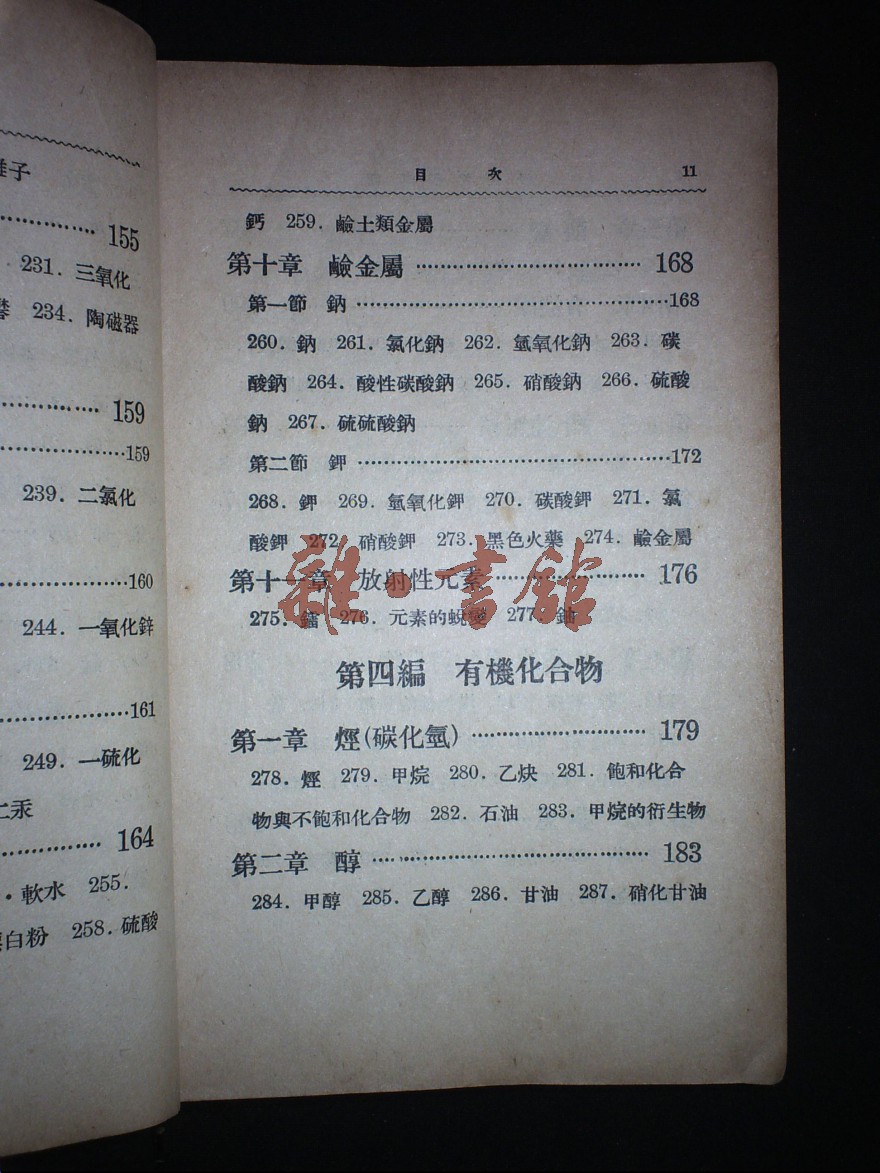 子
155
231. 三氧化
234. 陶磁器
159
159
239. 二氯化
160
244. 一氧化鋅
161
249. 一硫化
二汞
164
·軟水 255.
白粉 258. 硫酸
目 次 11
鈣 259. 鹼土類金屬
第十章 鹼金屬 168
第一節 鈉 168
260. 鈉 261. 氯化鈉 262. 氫氧化鈉 263. 碳
酸鈉 264. 酸性碳酸鈉 265. 硝酸鈉 266. 硫酸
鈉 267. 硫硫酸鈉
第二節 鉀 172
268. 鉀 269. 氫氧化鉀 270. 碳酸鉀 271. 氯
酸鉀 272. 硝酸鉀 273. 黑色火藥 274. 鹼金屬
第十一章 放射性元素 176
275. 鐳 276. 元素的蛻變 277. 鈾
雜·書館
第四編 有機化合物
第一章 烴(碳化氫) 179
278. 烴 279. 甲烷 280. 乙炔 281. 飽和化合
物與不飽和化合物 282. 石油 283. 甲烷的衍生物
第二章 醇 183
284. 甲醇 285. 乙醇 286. 甘油 287. 硝化甘油